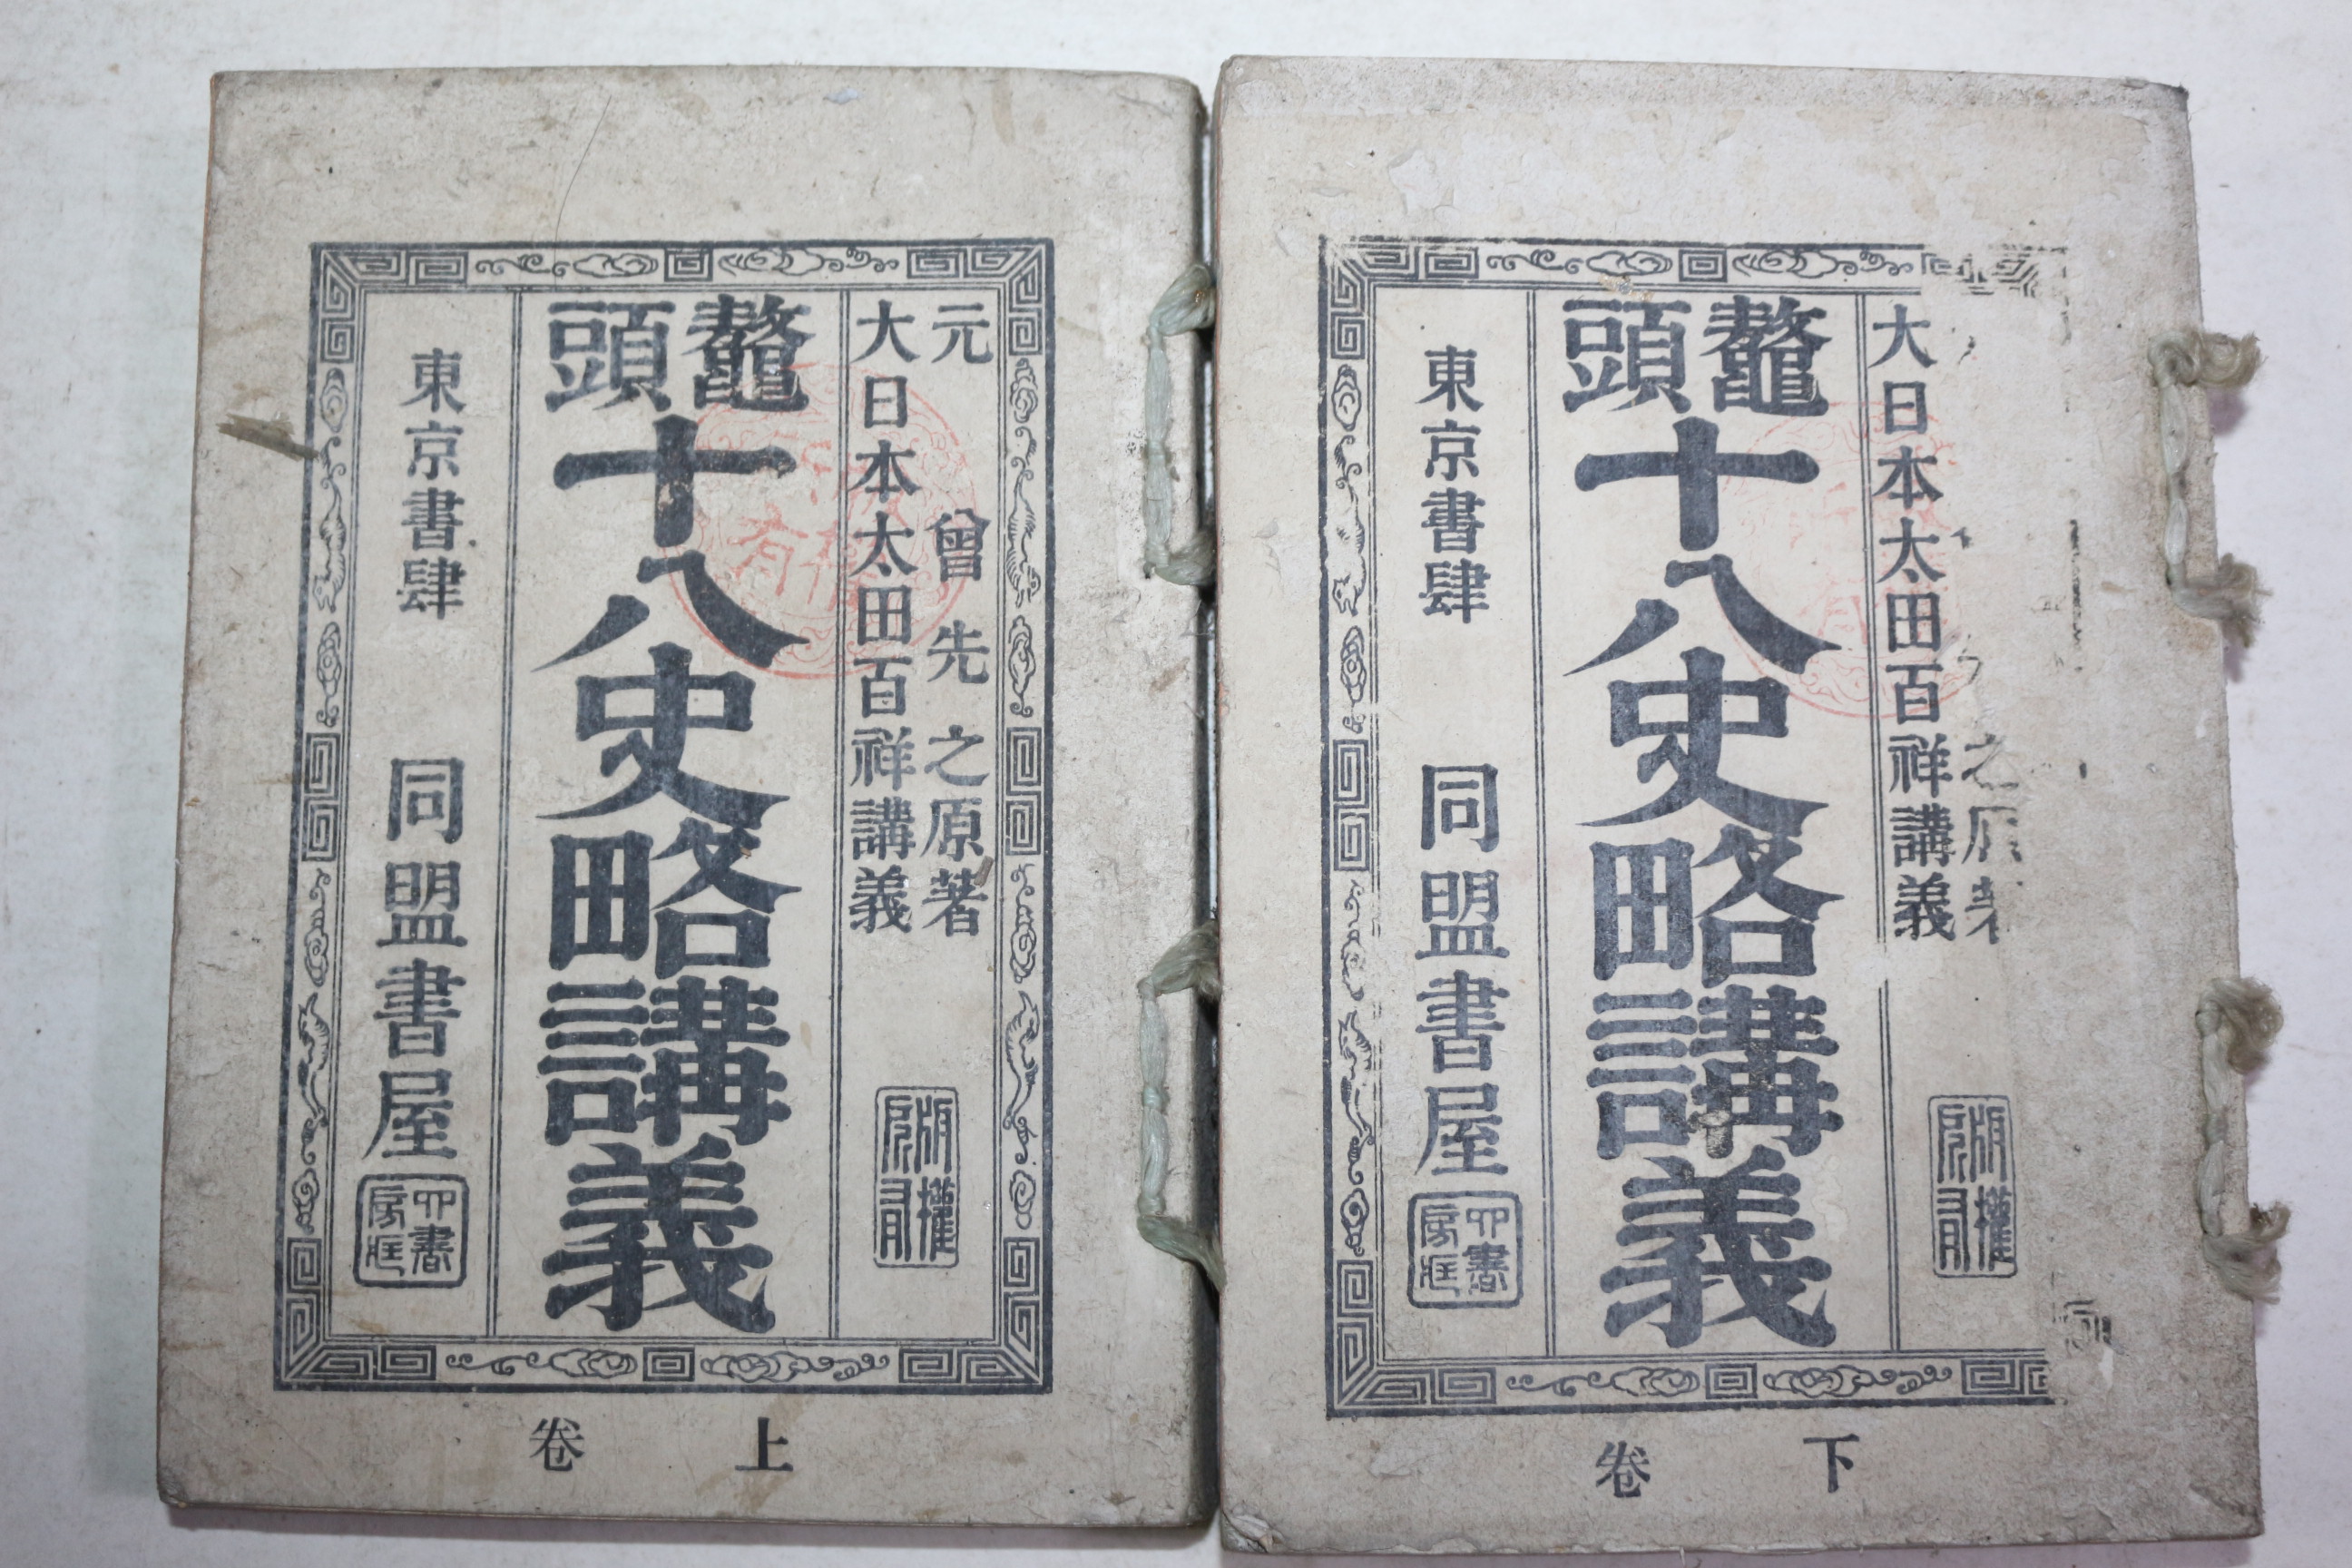 元 曾先之原著
大日本太田百祥講義
版權
所有
鼇頭十八史略講義
東京書肆 同盟書屋
上卷
大日本太田百祥講義
版權
所有
鼇頭十八史略講義
東京書肆 同盟書屋
下卷